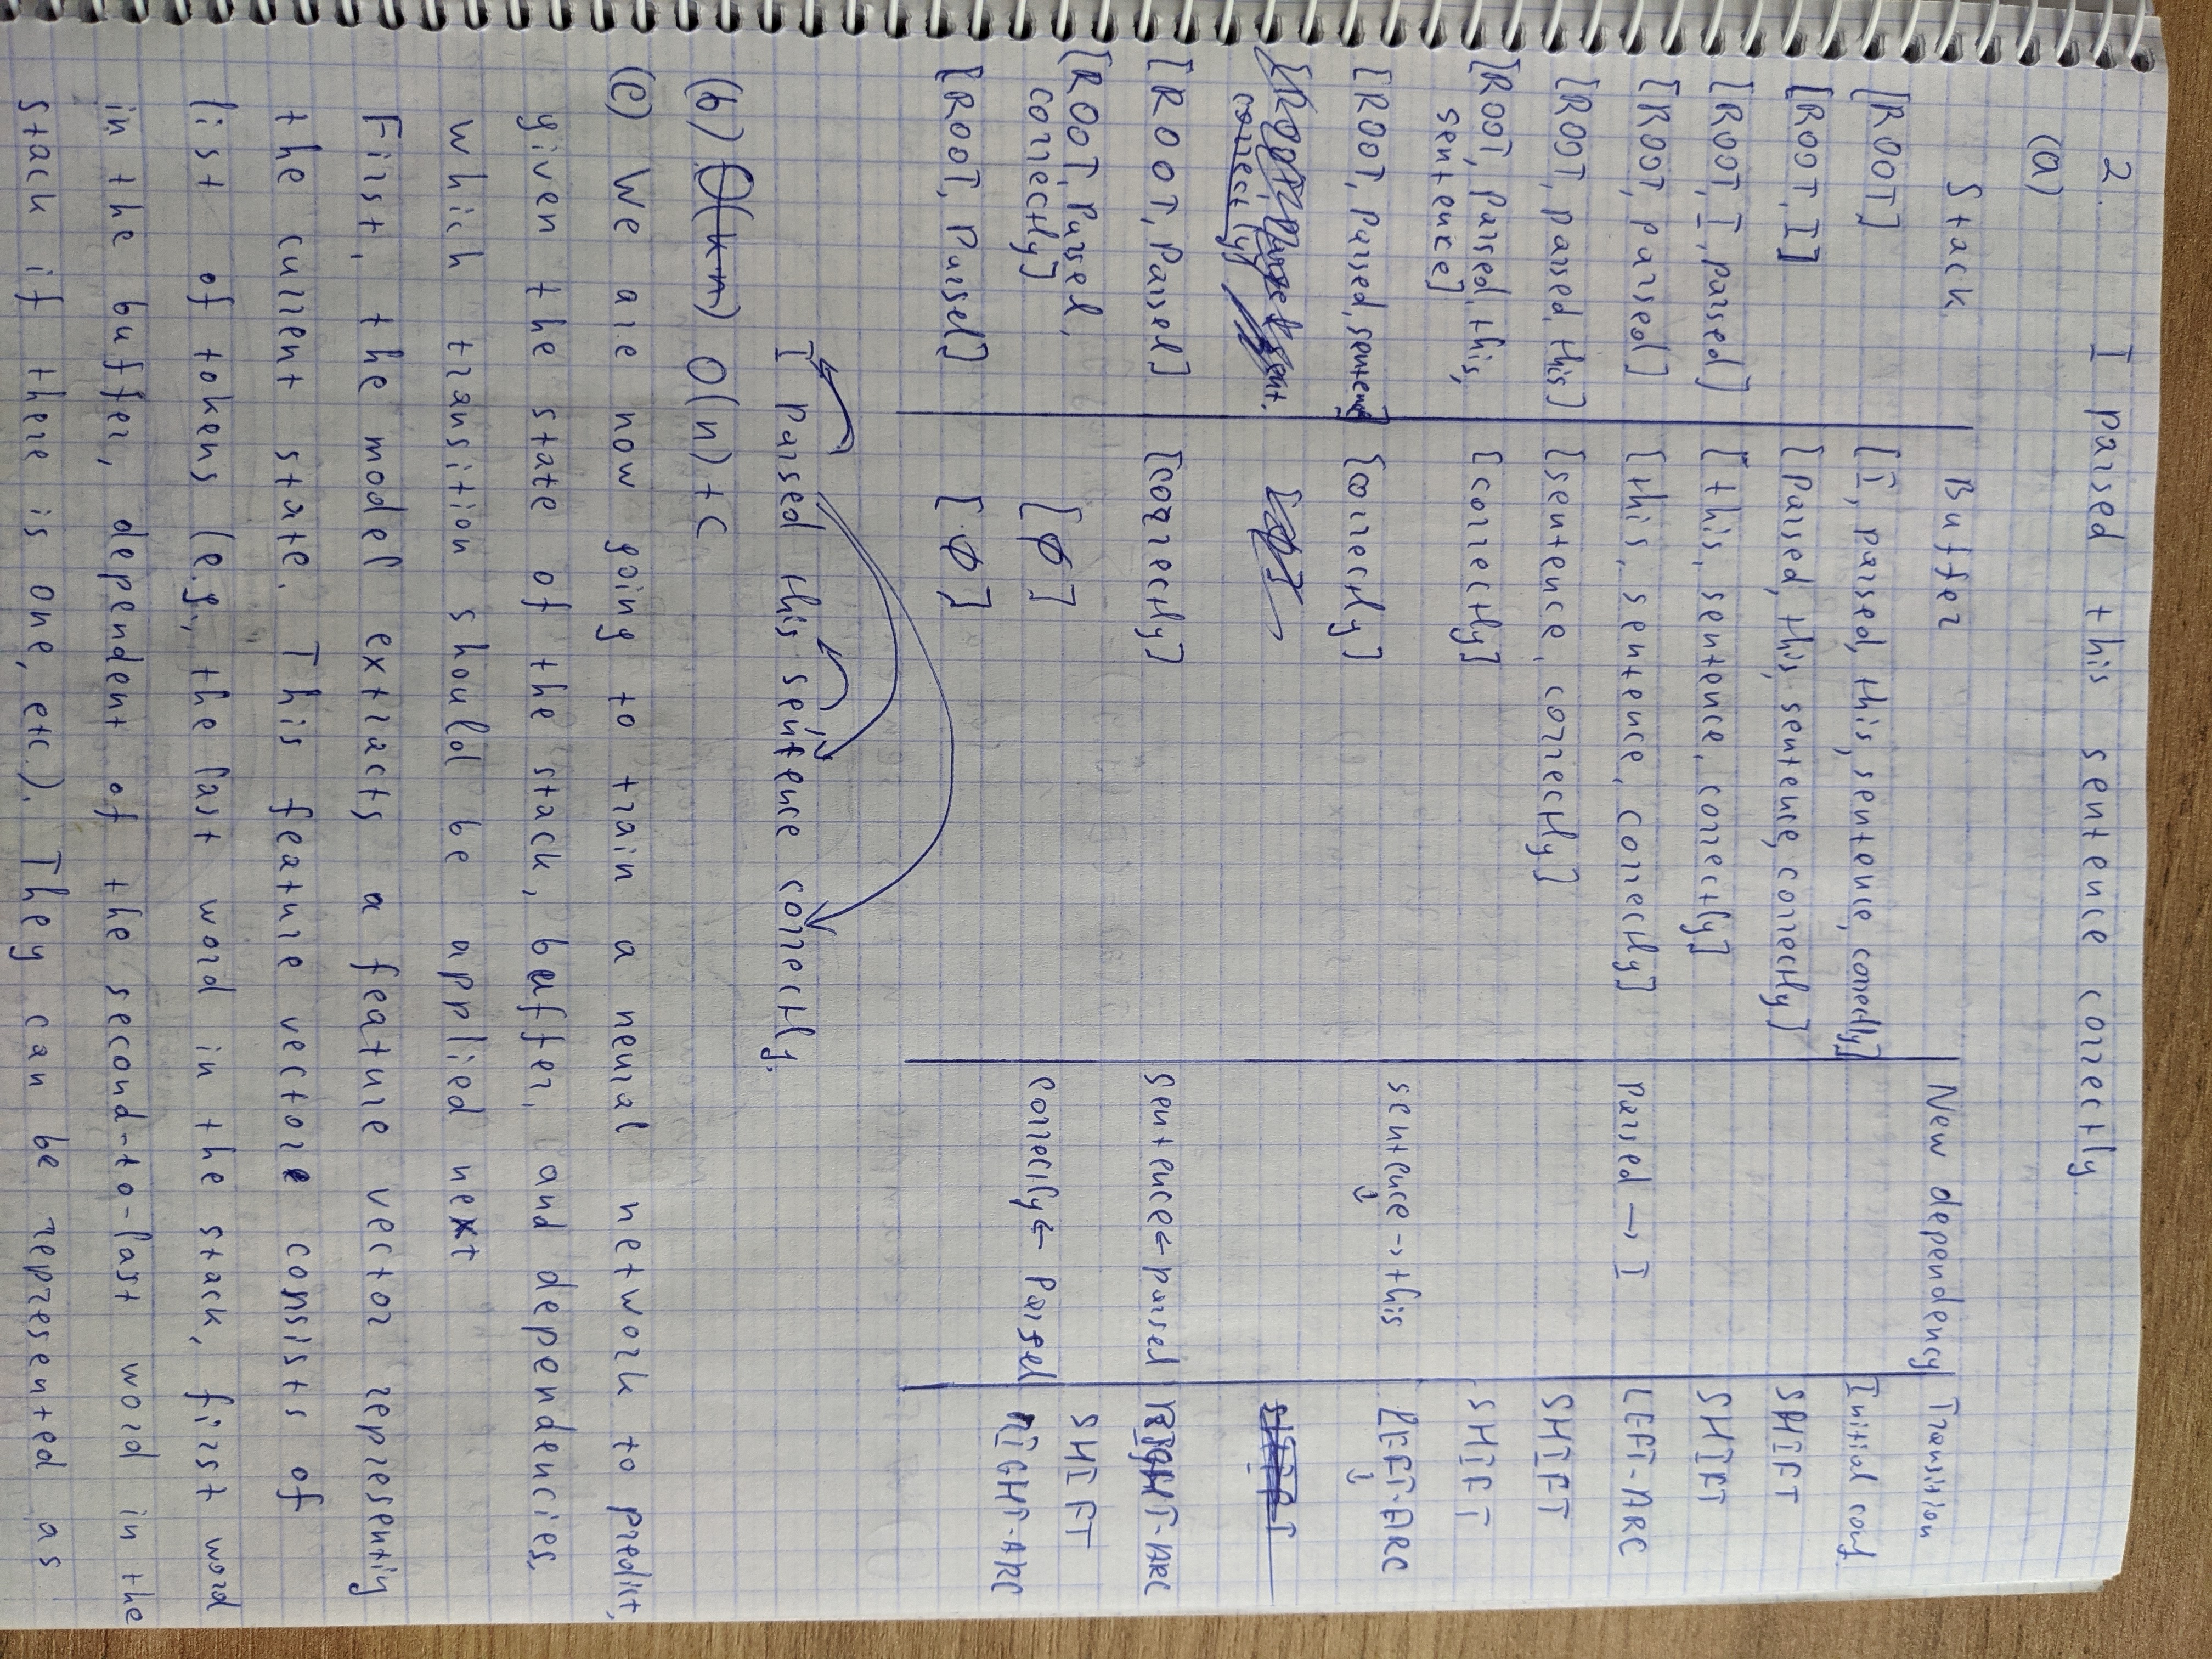 2. I parsed this sentence correctly.
(a)
Stack Buffer New dependency Transition
[ROOT] [I, parsed, this, sentence, correctly] Initial conf.
[ROOT, I] [Parsed, this, sentence, correctly] SHIFT
[ROOT, I, parsed] [this, sentence, correctly] SHIFT
[ROOT, parsed] [this, sentence, correctly] Parsed → I LEFT-ARC
[ROOT, parsed, this] [sentence, correctly] SHIFT
[ROOT, Parsed, this, sentence] [correctly] SHIFT
[ROOT, Parsed, sentence] [correctly] sentence → this LEFT-ARC
[ROOT, Parsed, sent. correctly] [∅] SHIFT
[ROOT, Parsel] [correctly] sentence ← parsel RIGHT-ARC
[ROOT, Parsel, correctly] [∅] SHIFT
[ROOT, Parsel] [∅] correctly ← Parsel RIGHT-ARC
I parsed this sentence correctly.
(b) O(k·n) O(n) + C
(c) We are now going to train a neural network to predict,
given the state of the stack, buffer, and dependencies,
which transition should be applied next
First, the model extracts a feature vector representing
the current state. This feature vector consists of
list of tokens (e.g., the last word in the stack, first word
in the buffer, dependent of the second-to-last word in the
stack if there is one, etc.). They can be represented as